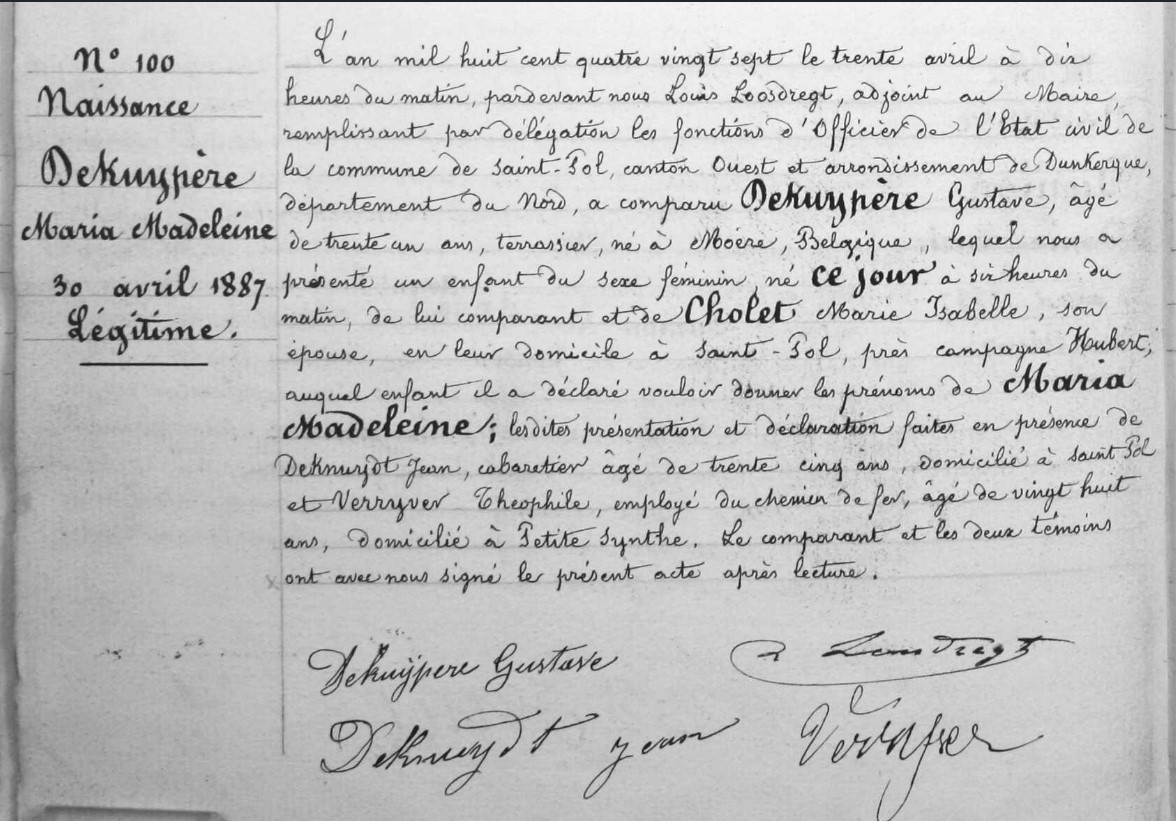 N° 100
Naissance
DeKuypère
Maria Madeleine
30 avril 1887
Légitime.
L'an mil huit cent quatre vingt sept le trente avril à dix
heures du matin, pardevant nous Louis Loosdregt, adjoint au Maire,
remplissant par délégation les fonctions d'Officier de l'Etat civil de
la commune de Saint-Pol, canton Ouest et arrondissement de Dunkerque,
département du Nord, a comparu DeKuypère Gustave, âgé
de trente un ans, terrassier, né à Moëre, Belgique, lequel nous a
présenté un enfant du sexe féminin, né ce jour à six heures du
matin, de lui comparant et de Cholet Marie Isabelle, son
épouse, en leur domicile à Saint-Pol, près campagne Hubert;
auquel enfant il a déclaré vouloir donner les prénoms de Maria
Madeleine; lesdites présentation et déclaration faites en présence de
DeKnuydt Jean, cabaretier âgé de trente cinq ans, domicilié à Saint Pol
et Verryver Theophile, employé du chemin de fer, âgé de vingt huit
ans, domicilié à Petite Synthe. Le comparant et les deux témoins
ont avec nous signé le présent acte après lecture.
Dekuÿpere Gustave
L Loosdregt
DeKnuydt jean